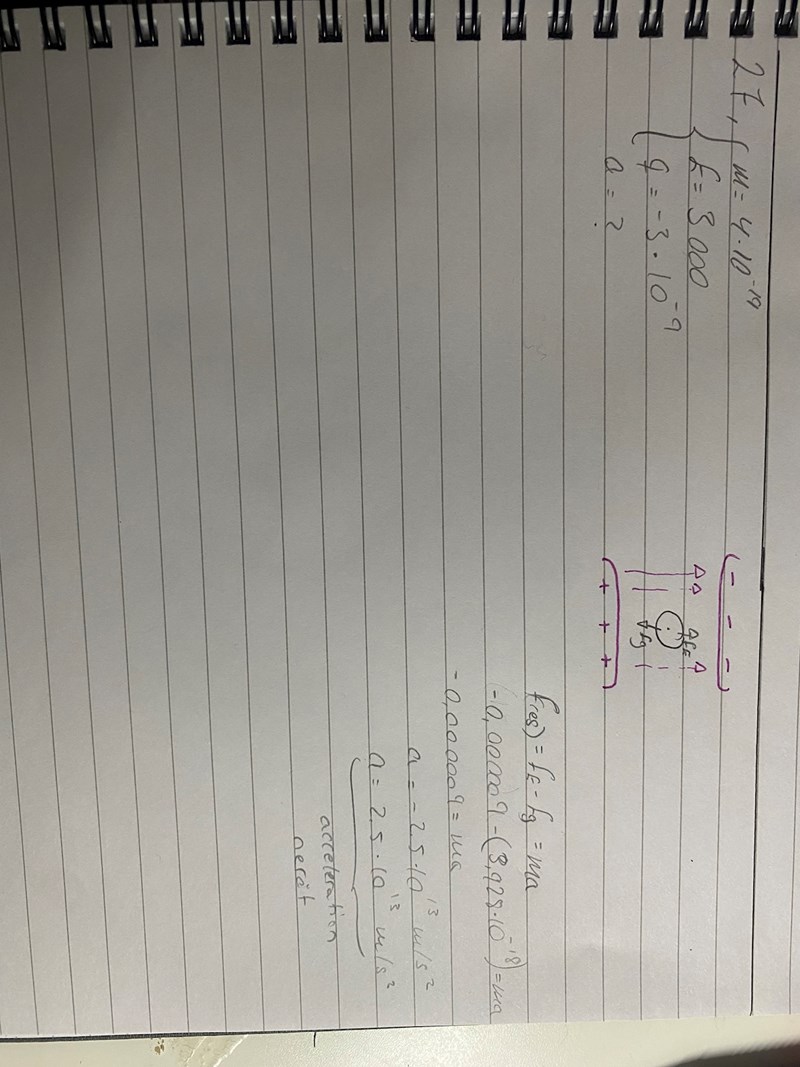 27, m = 4·10⁻¹⁹
E = 3 000
q = -3·10⁻⁹
a = ?
- - -
FE
Fg
+ + +
F(res) = FE - Fg = ma
-0,000009 - (3,928·10⁻¹⁸) = ma
-0,000009 = ma
a = -2.5·10¹³ m/s²
a = 2.5·10¹³ m/s²
acceleration
neråt